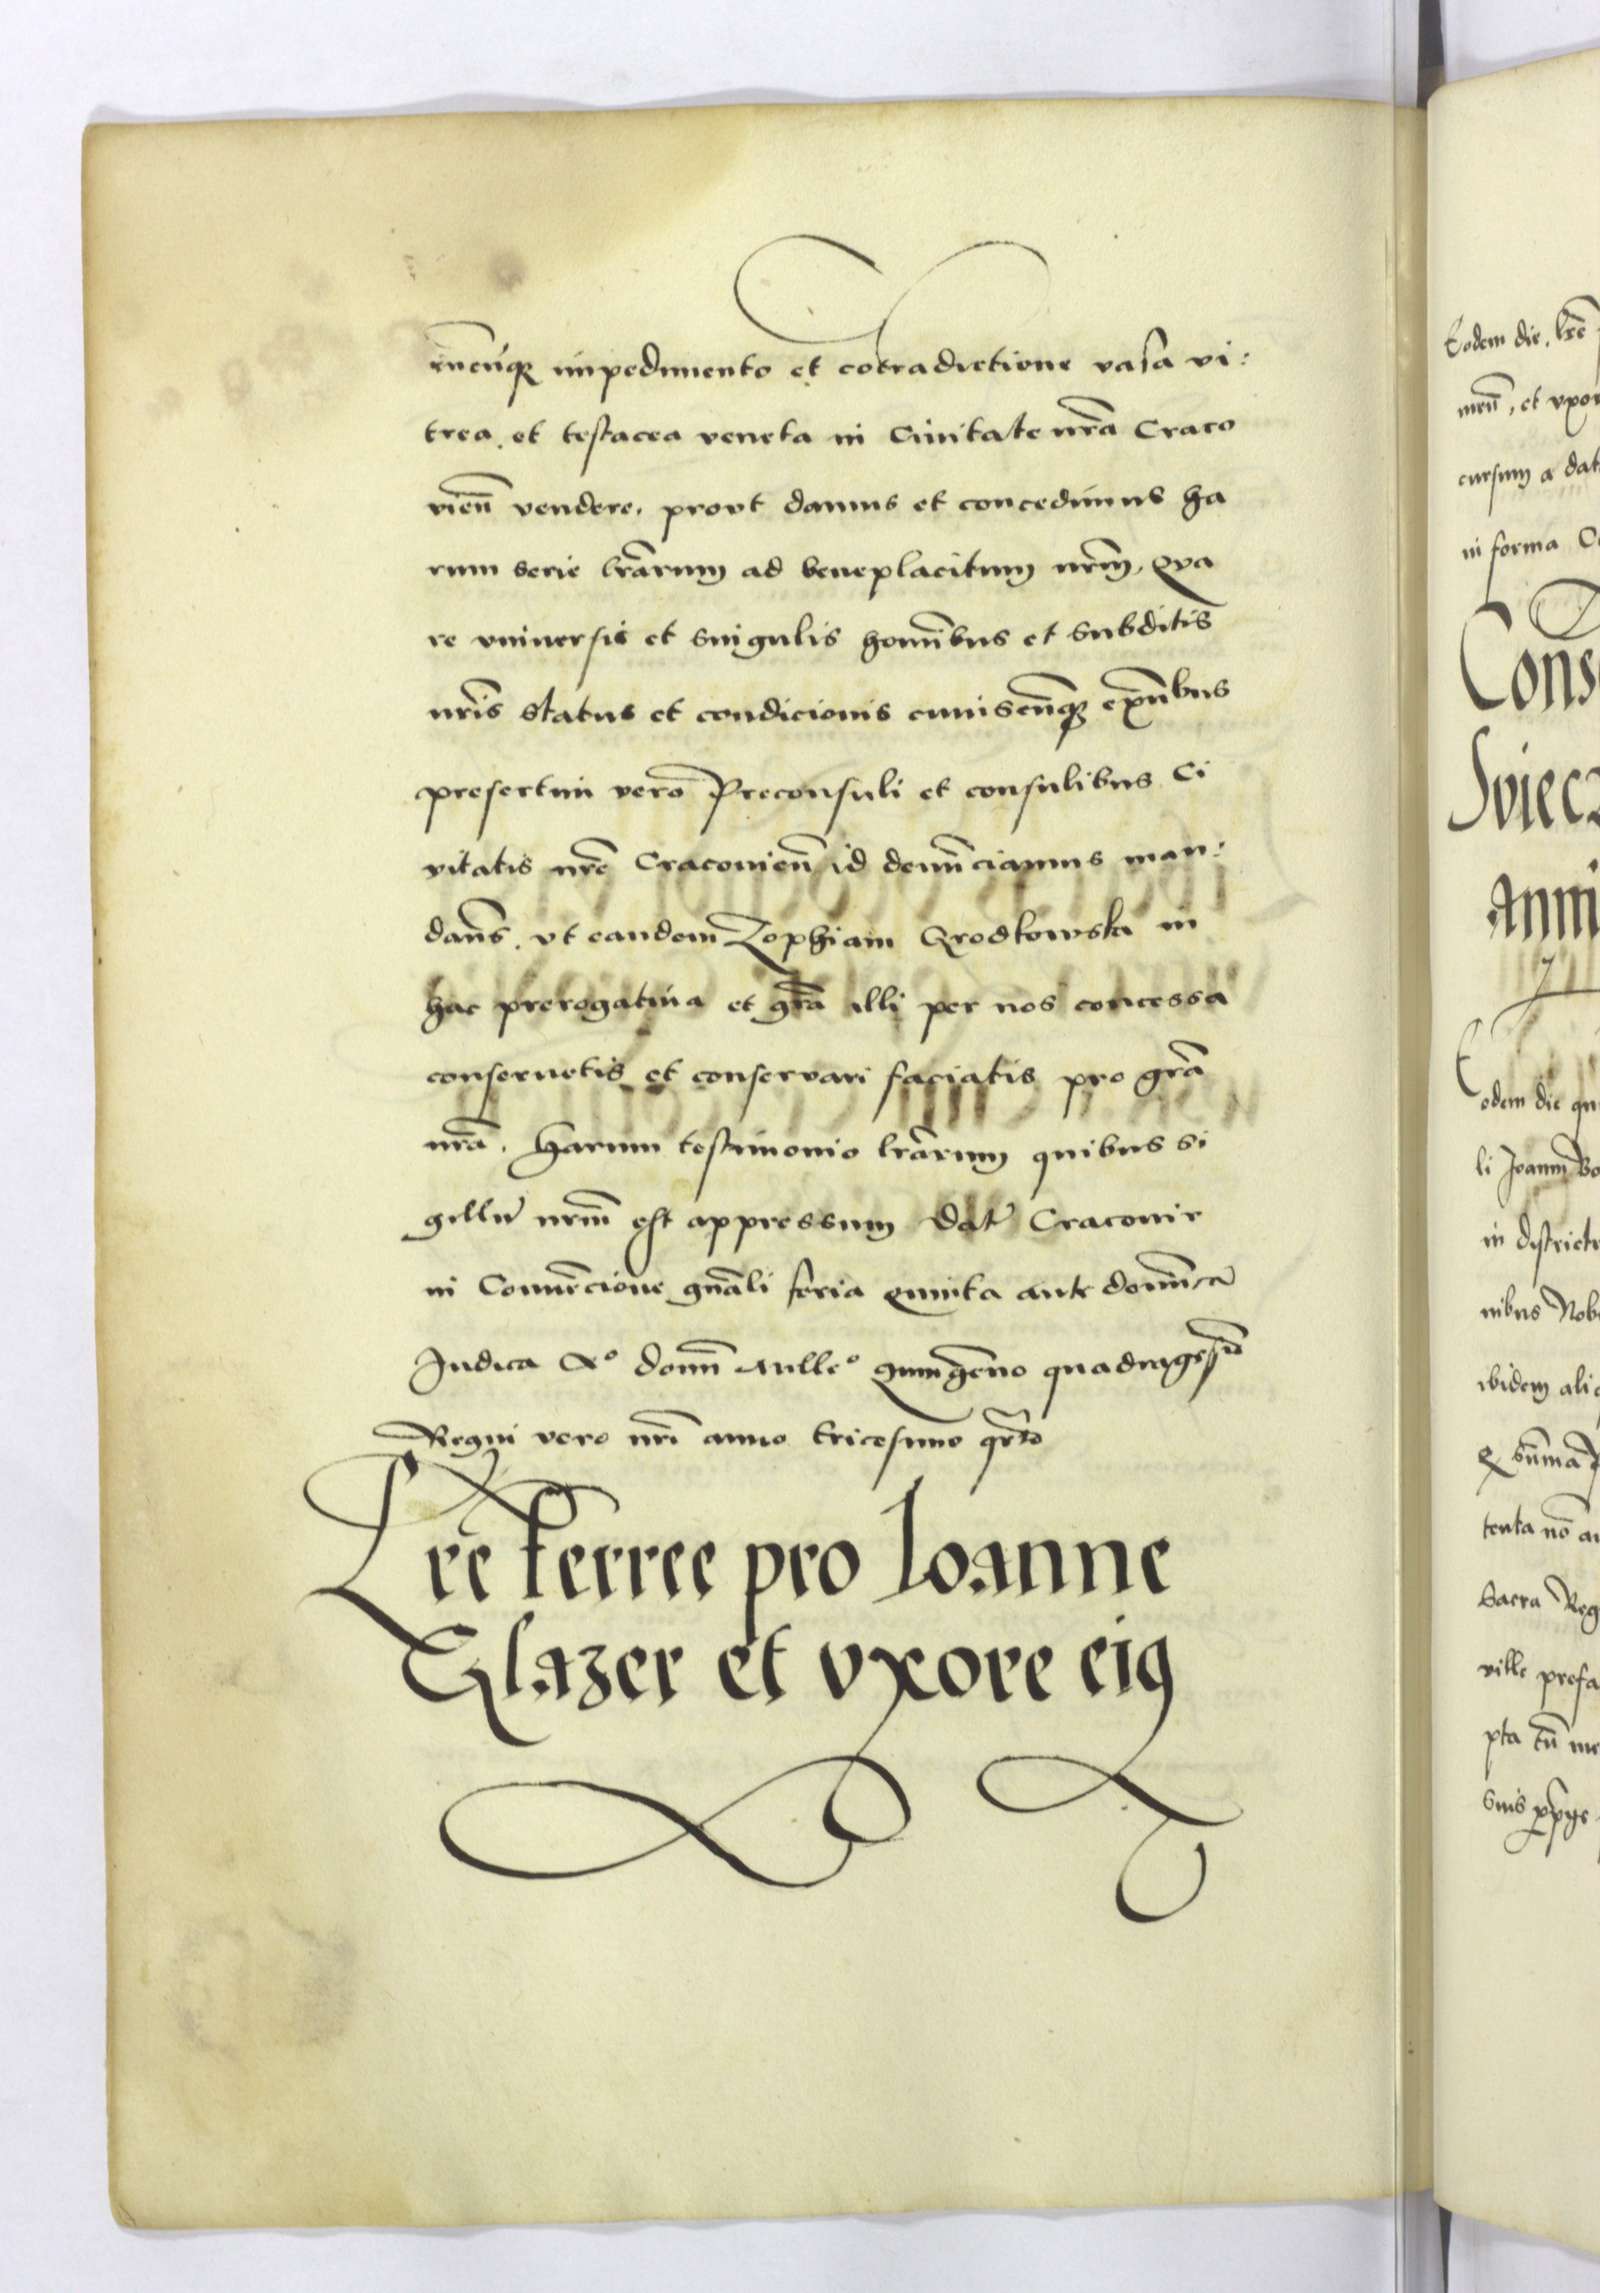 cuncűqz impedimento et cōtradictione vasa vi:
trea, et testacea veneta in Civitate nrā Craco
vieñ vendere, prout damus et concedimus ha
rum serie lrārum ad beneplacitum nrm̄, Qua
re vniuersis et singulis homībus et subditis
nrīs status et condicionis cuiuscūqz exñtibus
presertim vero Preconsuli et consulibus Ci
vitatis nrē Cracovieñ id denūciamus man:
dañs, vt eandem Zophiam Grodkowska in
hac prerogativa et grā illi per nos concessa
conservetis et conservari faciatis pro grā
nrā. Harum testimonio lrārum quibus si
gillū nrm̄ est appressum Datū Cracovie
in Convēcione gnāli feria quinta ante domīcā
Judica Aº domī Milleº quingēno quadragesīo
Regni vero nrī anno tricesimo qrto
Lrē ferree pro Ioanne
Glazer et vxore eiꝰ
Eodem die, lrē
meñ, et vxor
cursum a dat
in forma
Cons
Sviec
Anni
Eodem die
li Joanni
in districtu
nibus Nob
ibidem ali
summa
tenta nō
Sacra Reg
ville prefa
pta tñ
suis